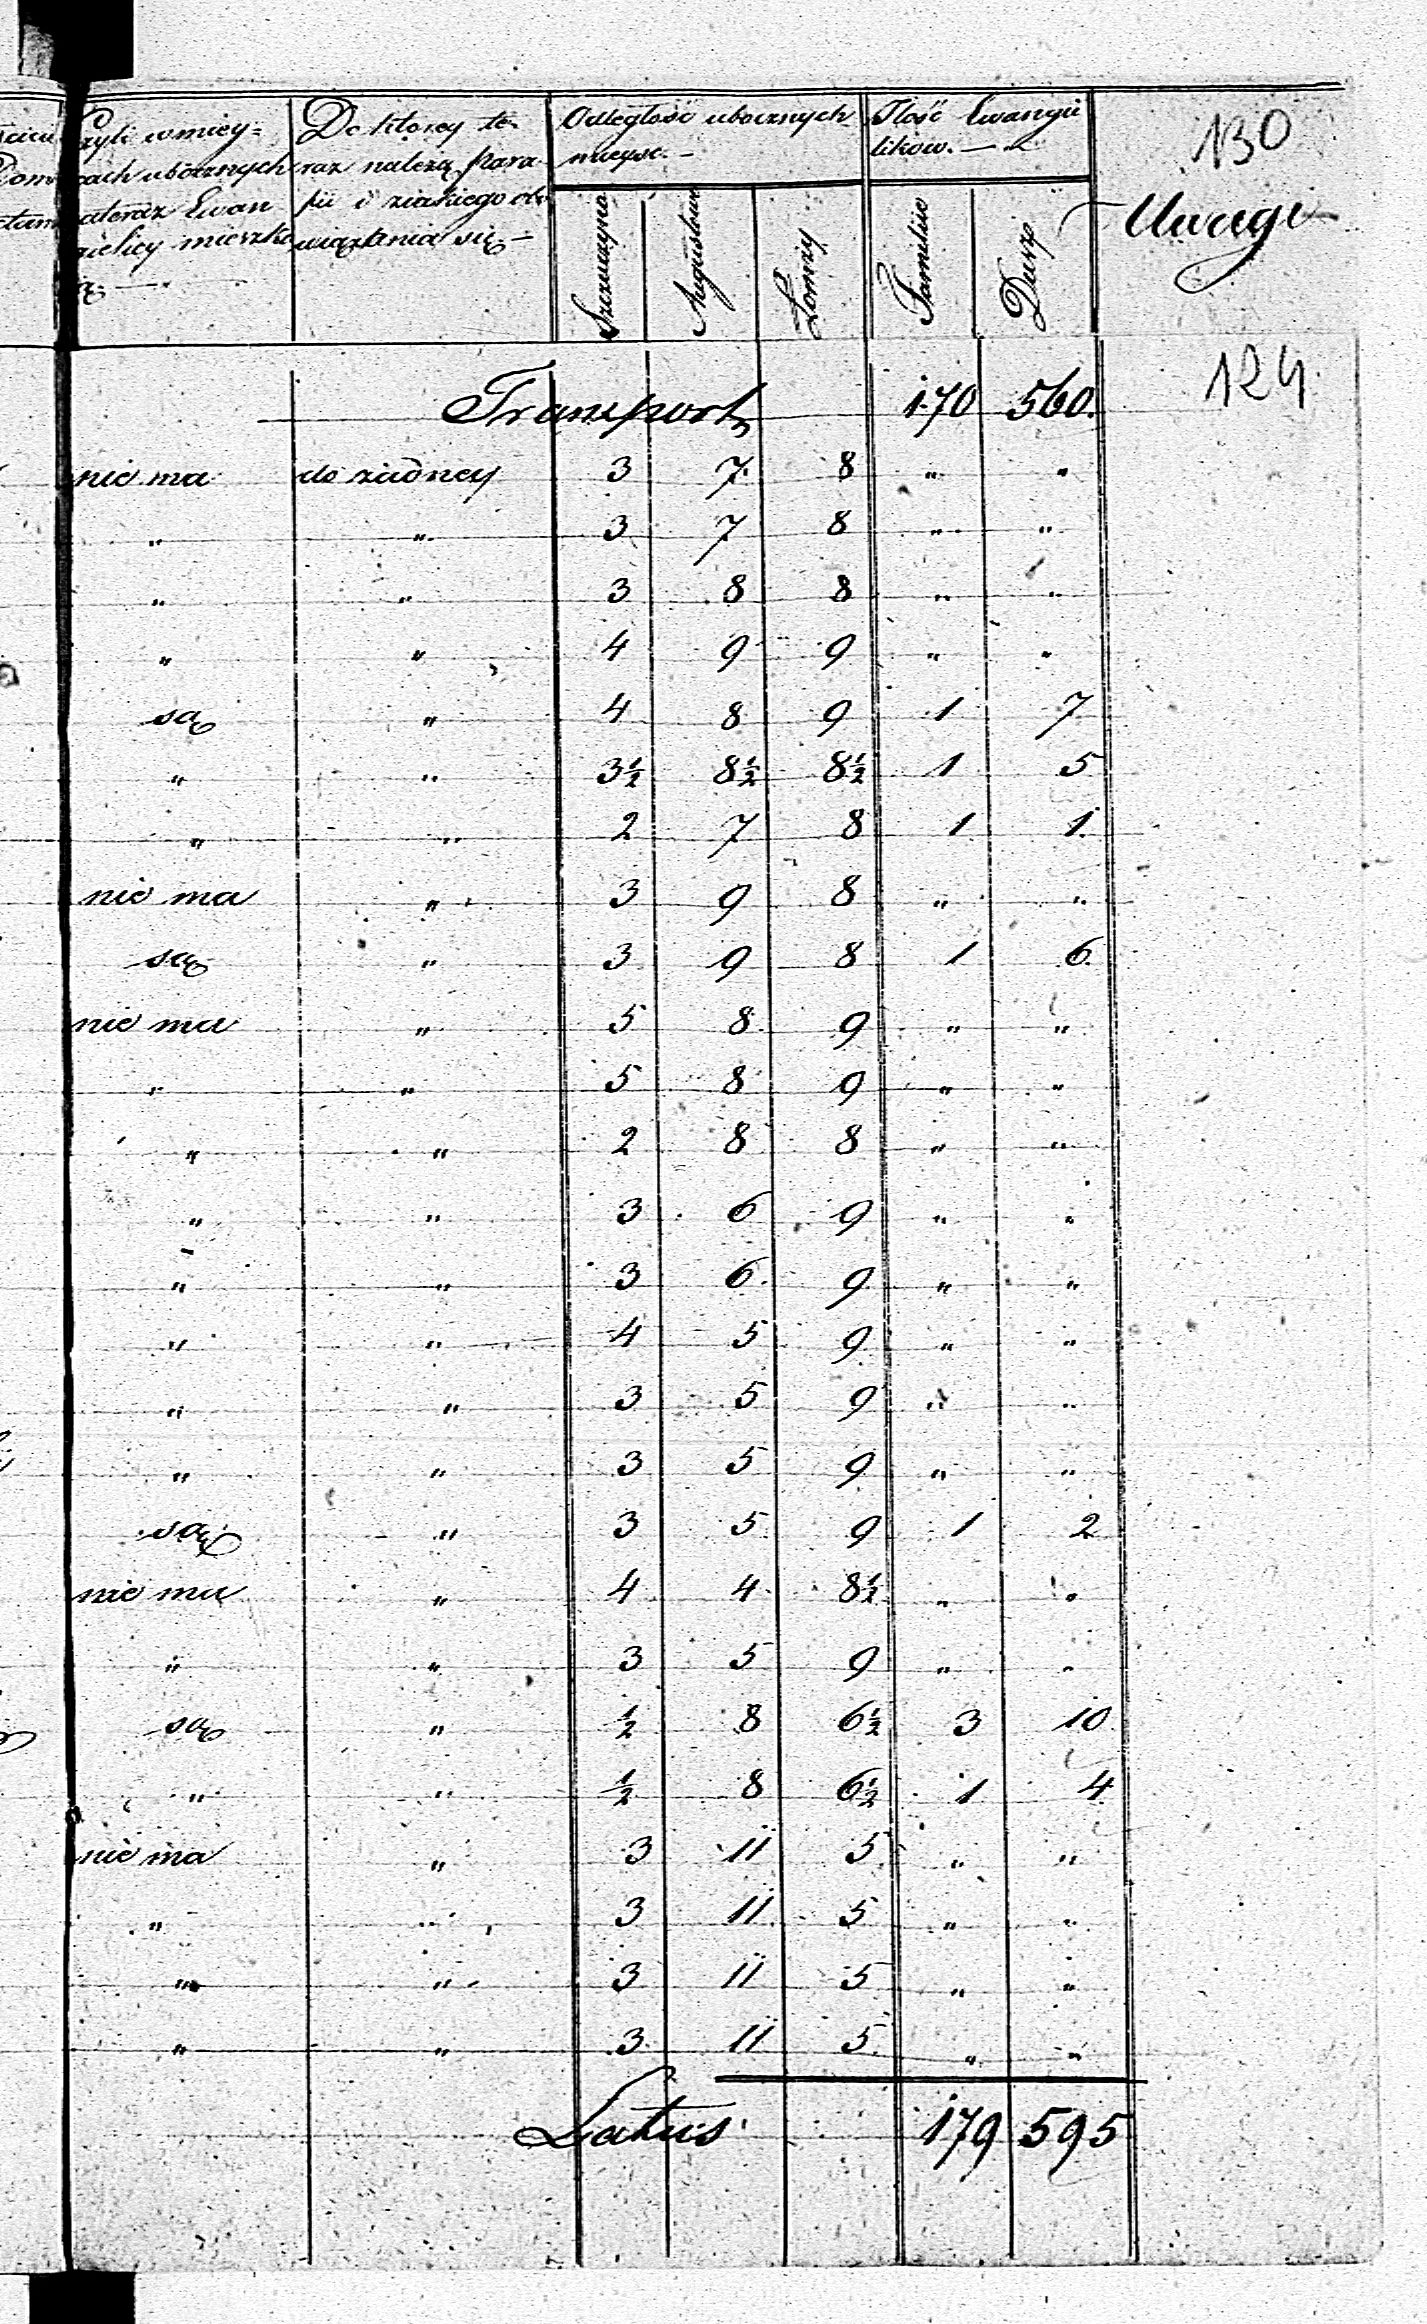 130
Czyli w miey=
scach ubocznych
a teraz Ewan
gielicy mieszka
ią. —
Do ktorey te
raz należą Para
fii i z iakiego obo
wiązkania się —
Odległość ubocznych
mieysc. —
Szczuczyna
Augustowa
Łomży
Ilość Ewangie
likow. —
Familiio
Dusz
Uwagi
124
Transport 170 560.
nie ma do żadney 3 7 8 " "
" " 3 7 8 " "
" " 3 8 8 " "
" " 4 9 9 " "
są " 4 8 9 1 7
" " 3½ 8½ 8½ 1 5
" " 2 7 8 1 1.
nie ma " 3 9 8 " "
są " 3 9 8 1 6.
nie ma " 5 8 9 " "
" " 5 8 9 " "
" " 2 8 8 " "
" " 3 6 9 " "
" " 3 6 9 " "
" " 4 5 9 " "
" " 3 5 9 " "
" " 3 5 9 " "
są " 3 5 9 1 2
nie ma " 4 4 8½ " "
" " 3 5 9 " "
są " ½ 8 6½ 3 10
" " ½ 8 6½ 1 4
nie ma " 3 11 5 " "
" " 3 11 5 " "
" " 3 11 5 " "
" " 3 11 5 " "
Latus 179 595